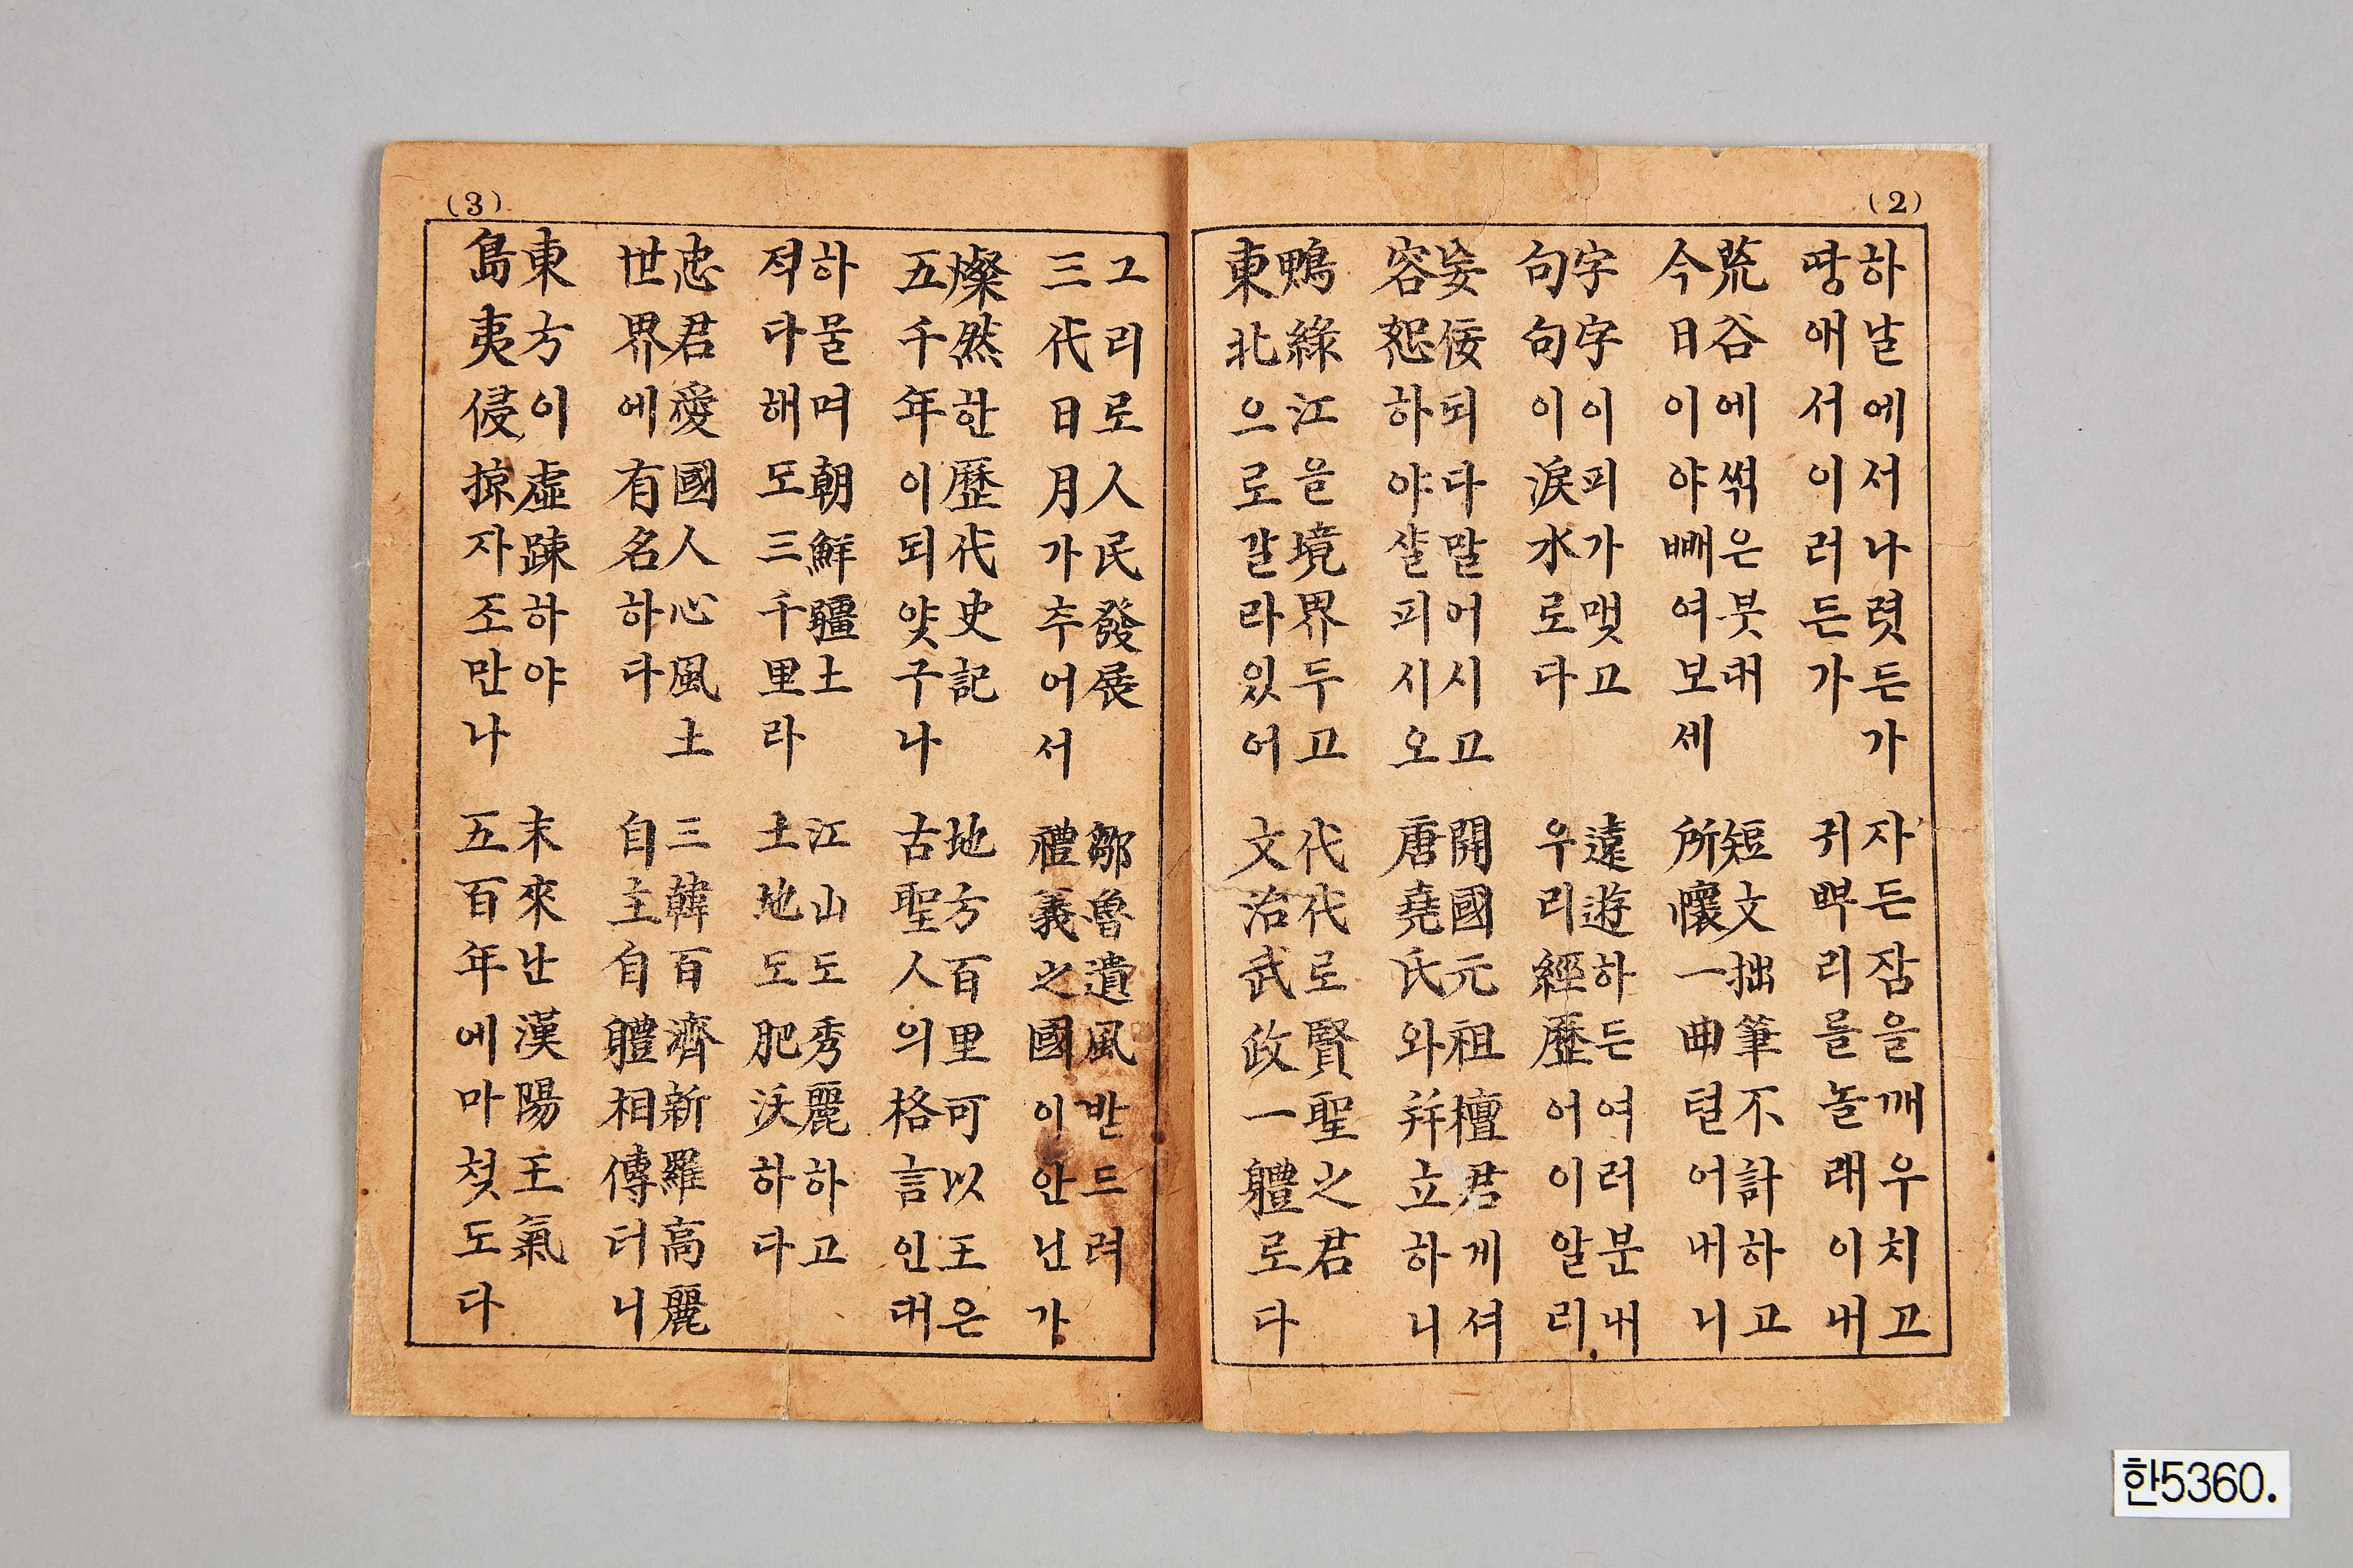 (2)
하날에서나렷든가
땅애서이러든가
자든잠을깨우치고
귀뿌리를놀래이내
荒谷에썩은붓대
今日이야빼여보세
短文拙筆不計하고
所懷一曲텰어내니
字字이피가맺고
句句이淚水로다
遠遊하든여러분내
우리經歷어이알리
妄佞되다말어시고
容恕하야샬피시오
開國元祖檀君게셔
唐堯氏와幷立하니
鴨綠江을境界두고
東北으로갈라있어
代代로賢聖之君
文治武政一軆로다
(3)
그리로人民發展
三代日月가추어서
鄒魯遺風받드려
禮義之國이안닌가
燦然한歷代史記
五千年이되얏구나
地方百里可以王은
古聖人의格言인대
하물며朝鮮疆土
젹다해도三千里라
江山도秀麗하고
土地도肥沃하다
忠君愛國人心風土
世界에有名하다
三韓百濟新羅高麗
自主自軆相傳터니
東方이虛踈하야
島夷侵掠자조만나
末來난漢陽王氣
五百年에마쳣도다
한5360.